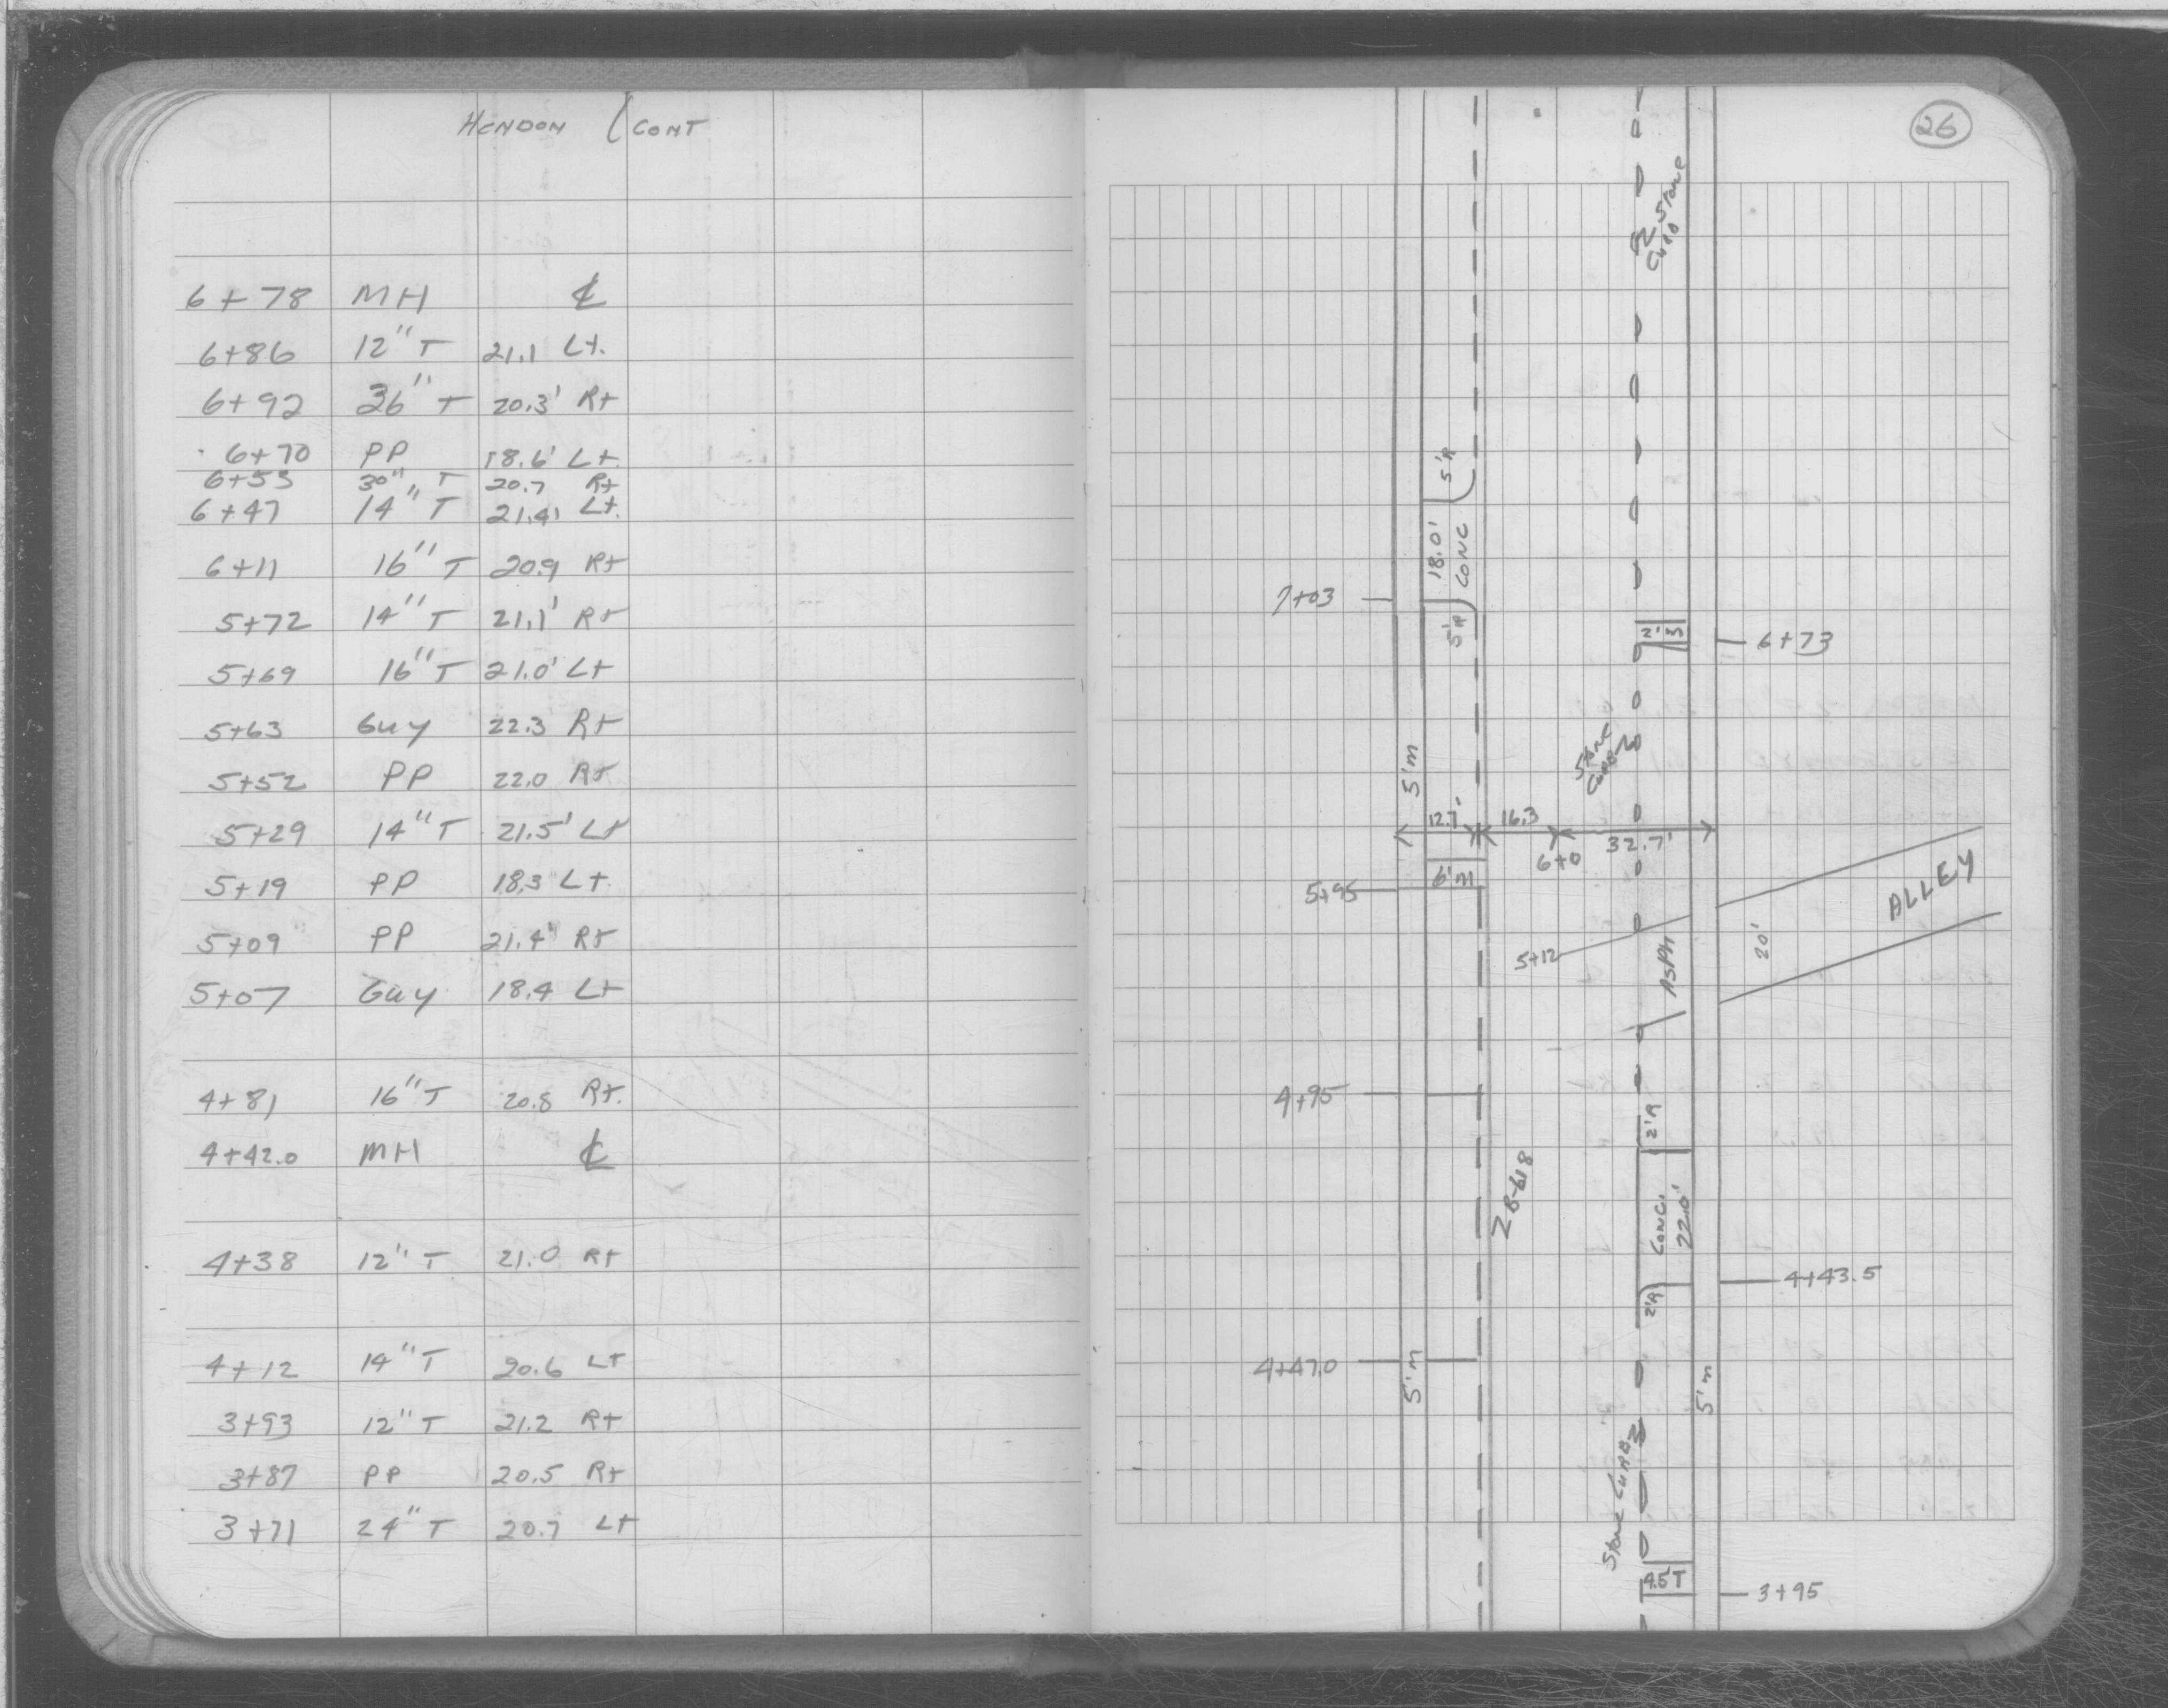 HENDON (CONT
6+78 MH ℄
6+86 12" T 21.1 Lt.
6+92 36" T 20.3' Rt
6+70 PP 18.6' Lt.
6+53 30" T 20.7 Rt
6+47 14" T 21.4' Lt.
6+11 16" T 20.9 Rt
5+72 14" T 21.1' Rt
5+69 16" T 21.0' Lt
5+63 Guy 22.3 Rt
5+52 PP 22.0 Rt
5+29 14" T 21.5' Lt
5+19 PP 18.3 Lt.
5+09 PP 21.4' Rt
5+07 Guy 18.4 Lt
4+81 16" T 20.8 Rt.
4+42.0 MH ℄
4+38 12" T 21.0 Rt
4+12 14" T 20.6 Lt
3+93 12" T 21.2 Rt
3+87 PP 20.5 Rt
3+71 24" T 20.7 Lt
26
Stone
Curb
5'R
18.0'
CONC
7+03
5'R
2' S
6+73
Stone
Curb
5'm
12.7' 16.3
32.7'
6+0
6'm
5+95
ALLEY
20'
5+12
ASPH
4+95
2'R
2B-618
CONC.
22.0'
4+43.5
2'R
4+47.0
5'm
5'm
Stone CURB
4.5'T
3+95